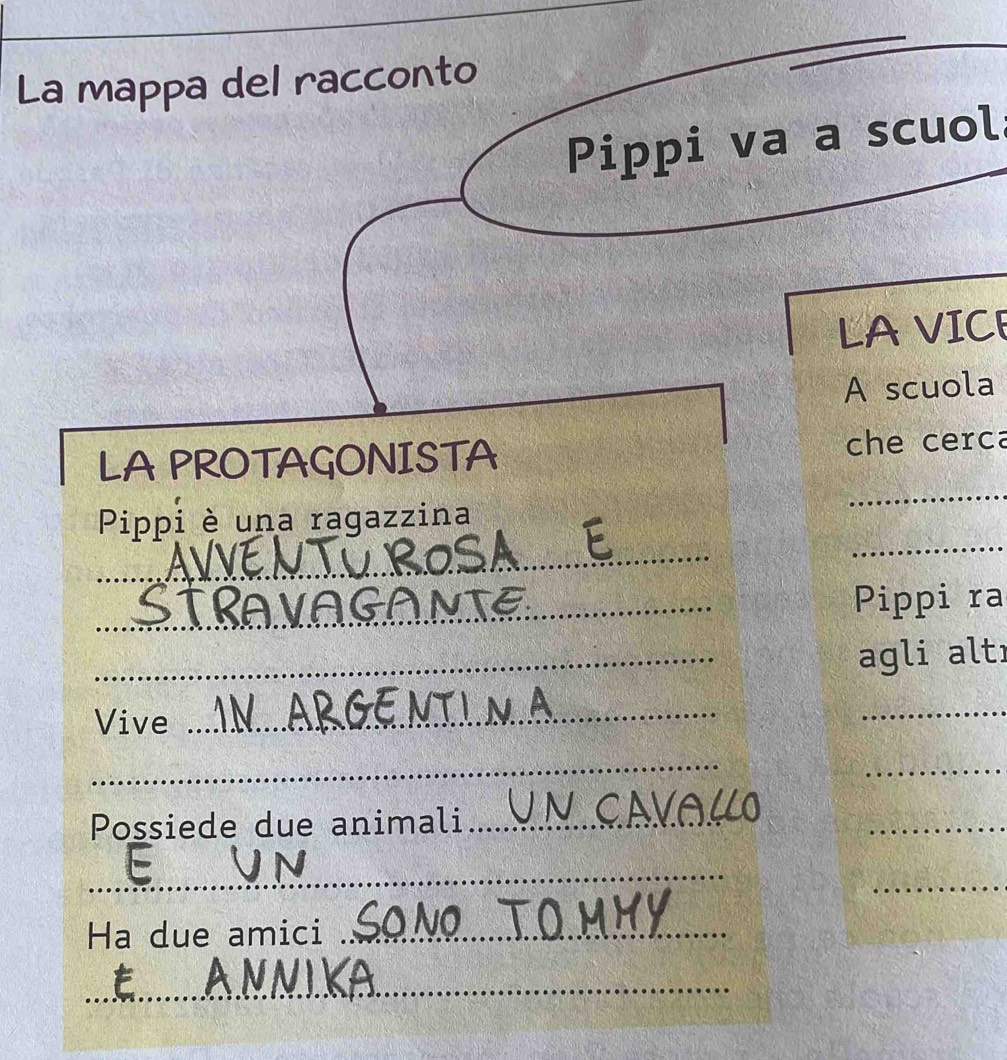 La mappa del racconto
Pippi va a scuol
LA PROTAGONISTA
Pippi è una ragazzina
AVVENTUROSA E
STRAVAGANTE.
Vive IN ARGENTINA
Possiede due animali UN CAVALLO
E UN
Ha due amici SONO TOMMY
E ANNIKA
LA VICE
A scuola
che cerca
Pippi ra
agli altr